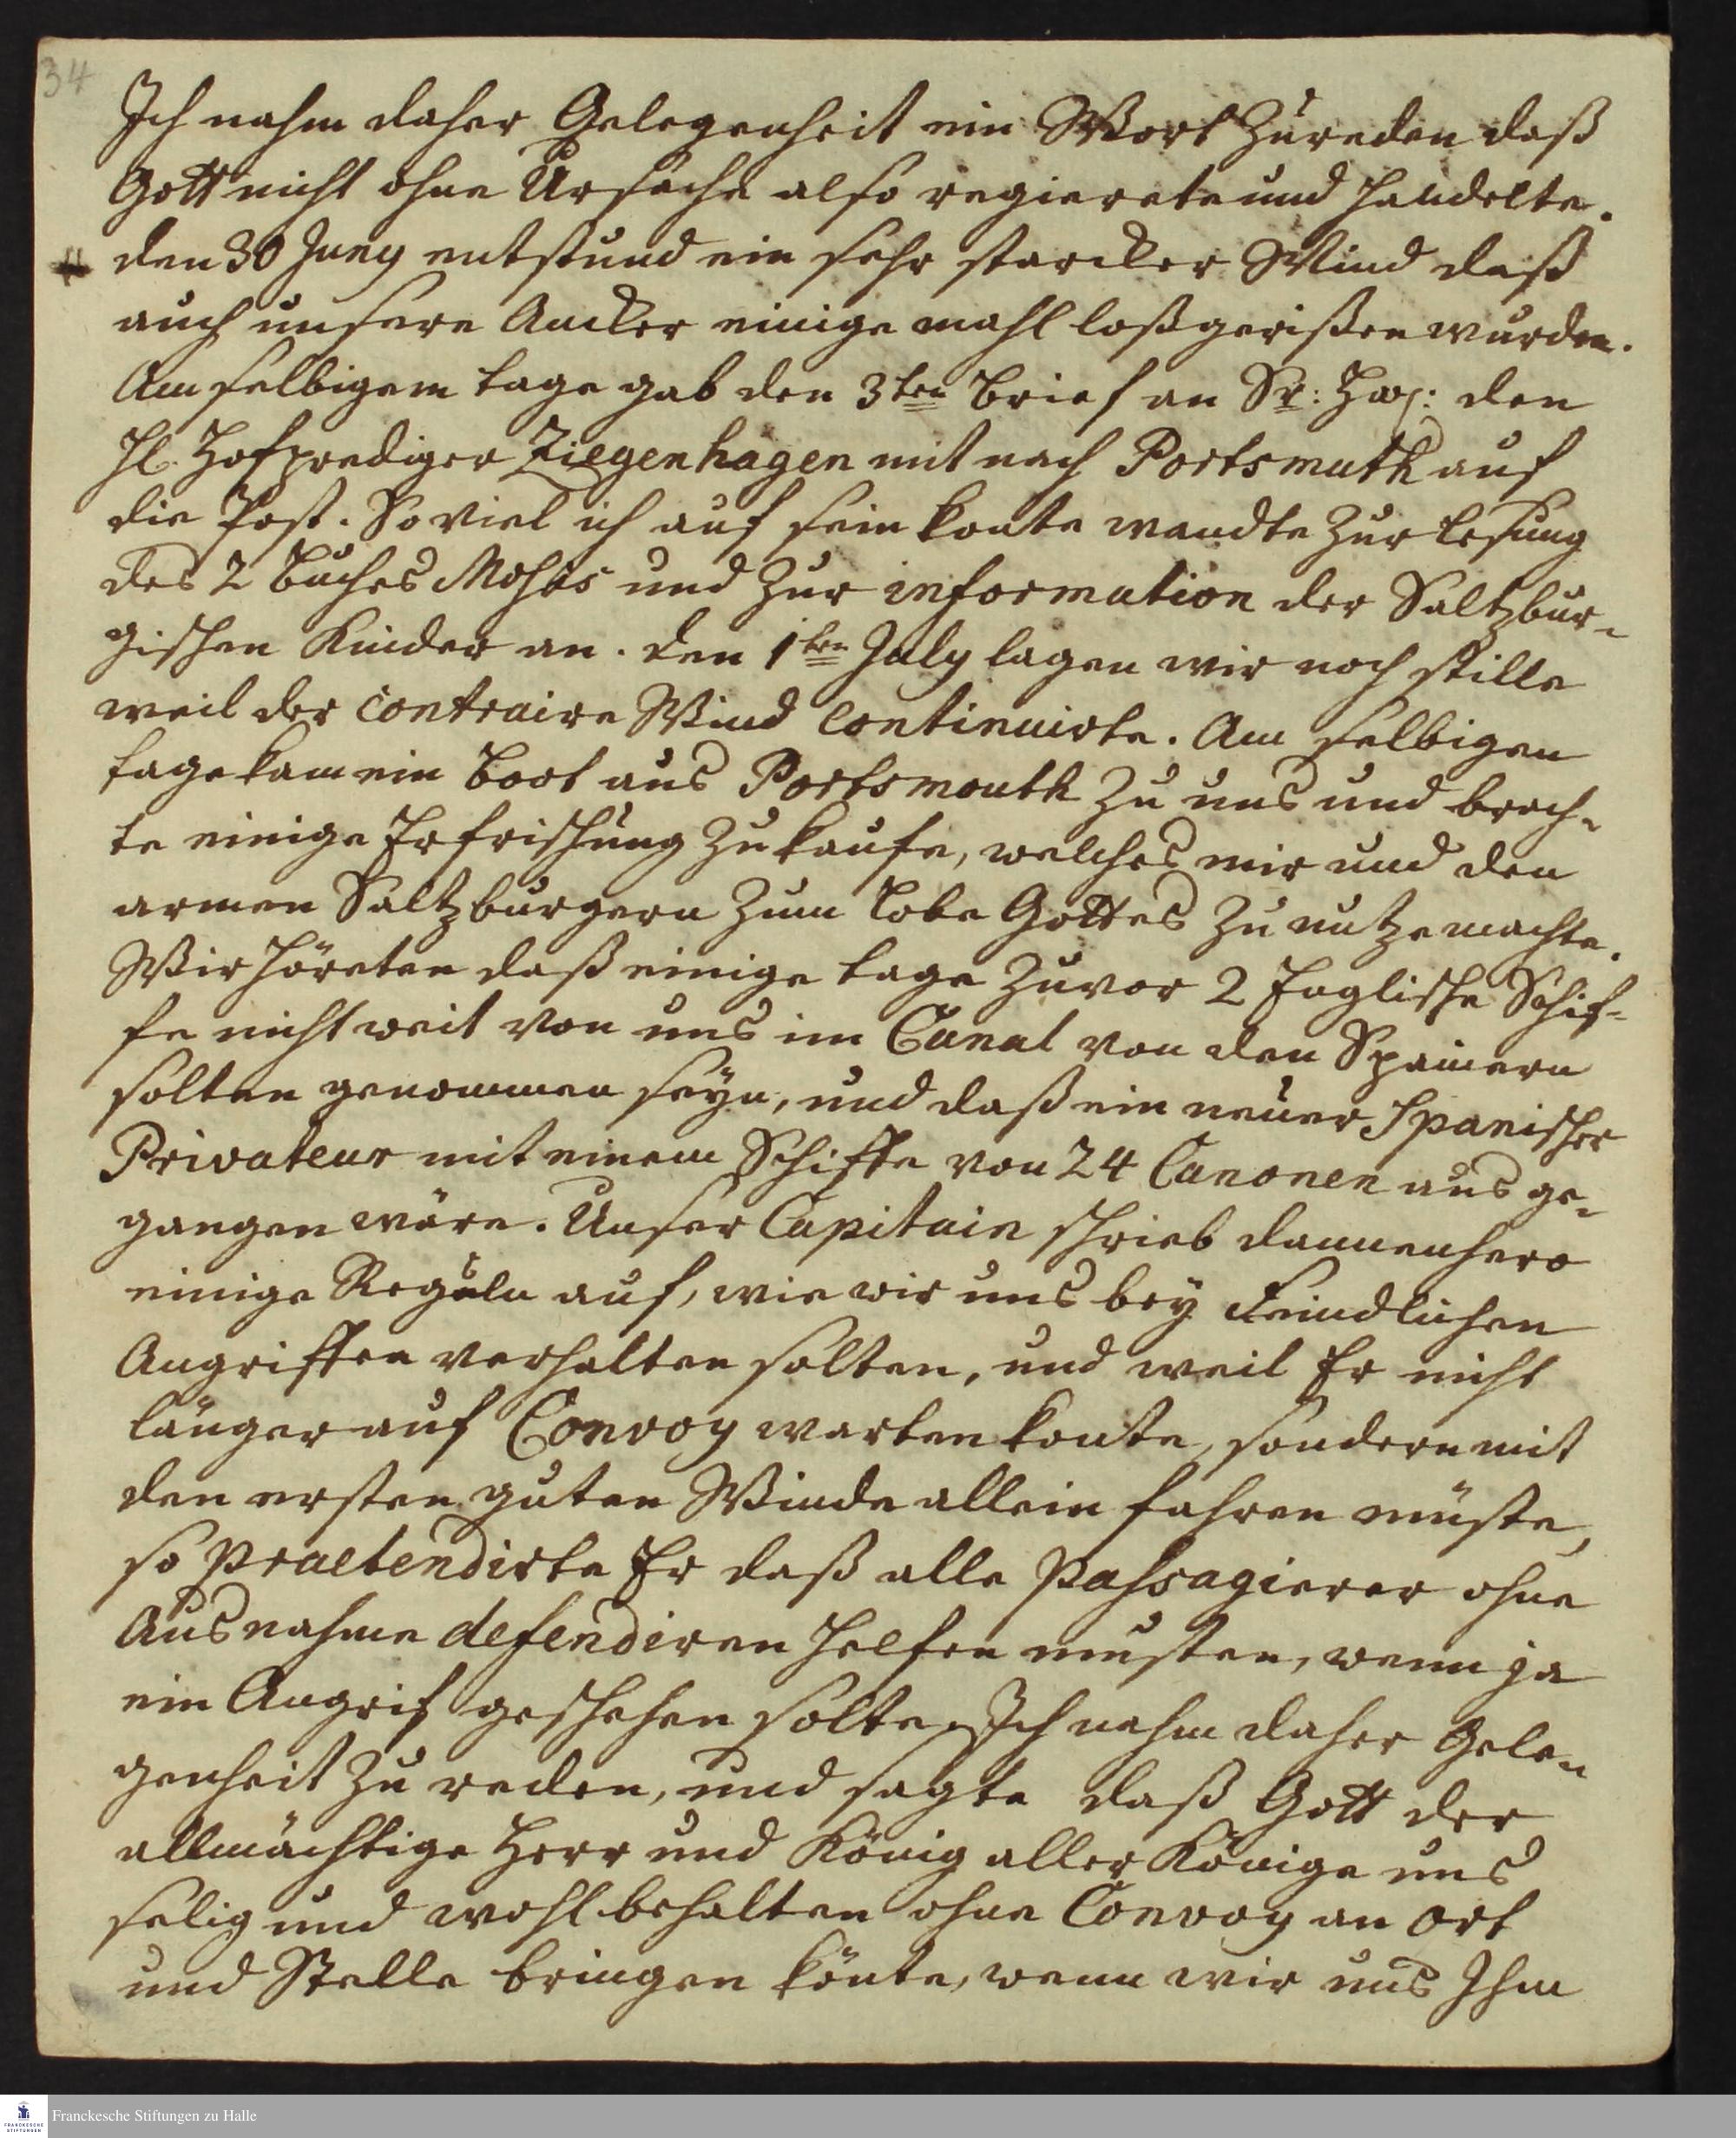 34
Ich nahm daher Gelegenheit ein Wort zu reden daß
Gott nicht ohne Ursache also regierete und handelte.
den 30 Juny entstund ein sehr starcker Wind daß
auch unsere Ancker einige mahl loßgerißen wurden.
Am selbigem tage gab den 3ten Brief an Sr: den
H. Hofprediger Ziegenhagen mit nach Portsmuth auf
die Post. So viel ich auf sein konte wandte zur lesung
des 2 Buches Mosis und zur information der Saltzbur-
gischen Kinder an. den 1ten July lagen wir noch stille
weil der contraire Wind continuirte. Am selbigen
tage kam ein Boot aus Portsmouth zu uns und brach-
te einige Erfrischung zu kaufe, welches mir und den
armen Saltzburgern zum Lobe Gottes zu nutze machte.
Wir höreten daß einige tage zuvor 2 Englische Schif-
fe nicht weit von uns im Canal von den Spaniern
solten genommen seyn, und daß ein neuer Spanischer
Privateur mit einem Schiffe von 24 Canonen aus ge-
gangen wäre. Unser Capitain schrieb dannenhero
einige Reguln auf, wie wir uns bey Feindlichen
Angriffen verhalten solten, und weil Er nicht
länger auf Convoy warten konte, sondern mit
den ersten guten Winde allein fahren müste,
so praetendirte Er daß alle Passagierer ohne
Ausnahme defendiren helfen musten, wenn ja
ein Angrif geschehen solte. Ich nahm daher Gele-
genheit zu reden, und sagte daß Gott der
allmächtige Herr und König aller Könige uns
selig und wohl behalten ohne Convoy an Ort
und Stelle bringen könte, wenn wir uns Ihm
FRANCKESCHE
STIFTUNGEN
Franckesche Stiftungen zu Halle